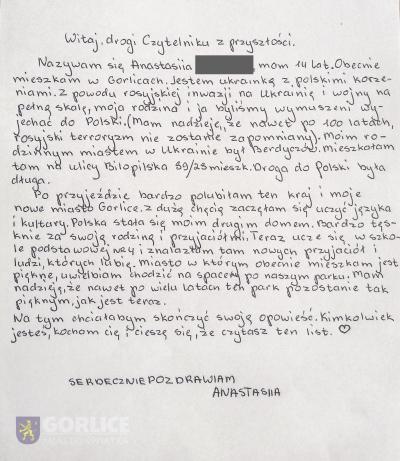 Witaj, drogi Czytelniku z przyszłości.
Nazywam się Anastasiia , mam 14 lat. Obecnie
mieszkam w Gorlicach. Jestem ukrainką z polskimi korze-
niami. Z powodu rosyjskiej inwazji na Ukrainię i wojny na
pełną skalę, moja rodzina i ja byliśmy wymuszeni wy-
jechać do Polski. (Mam nadzieję, że nawet po 100 latach,
rosyjski terroryzm nie zostanie zapomniany). Moim ro-
dzinnym miastem w Ukrainie był Berdyczów. Mieszkałam
tam na ulicy Bilopilska 59/25 mieszk. Droga do Polski była
długa.
Po przyjeździe bardzo polubiłam ten kraj i moje
nowe miasto Gorlice. Z dużą chęcią zaczęłam się uczyć języka
i kultary. Polska stała się moim drugim domem. Bardzo tęs-
knie za swoją rodziną i przyjaciółmi. Teraz uczę się w szko-
le podstawowej nr 1 i znalazłam tam nowych przyjaciół i
ludzi, których lubię, miasto w którym obecnie mieszkam jest
piękne, uwielbiam chodzić na spacery po naszym parku. Mam
nadzieję, że nawet po wielu latach ten park pozostanie tak
pięknym, jak jest teraz.
Na tym chciałabym skończyć swoją opowieść. Kimkolwiek
jesteś, kocham cię i cieszę się, że czytasz ten list. ♡
SERDECZNIE POZDRAWIAM
ANASTASIIA
GORLICE
MIASTO ŚWIATŁA